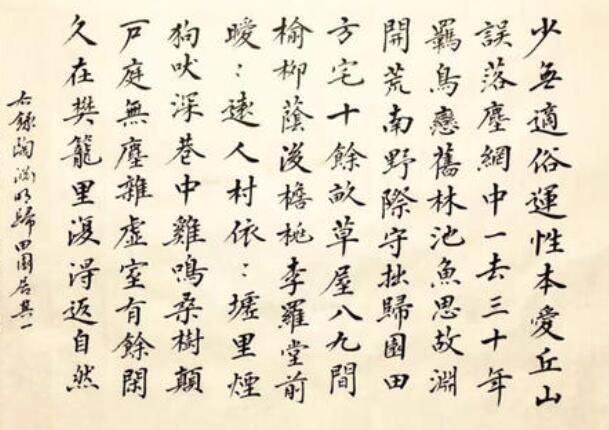 少無適俗運性本愛丘山
誤落塵網中一去三十年
羈鳥戀舊林池魚思故淵
開荒南野際守拙歸園田
方宅十餘畝草屋八九間
榆柳蔭後檐桃李羅堂前
曖：遠人村依：墟里煙
狗吠深巷中雞鳴桑樹顛
戶庭無塵雜虛室有餘閑
久在樊籠里復得返自然
右錄陶淵明歸田園居其一